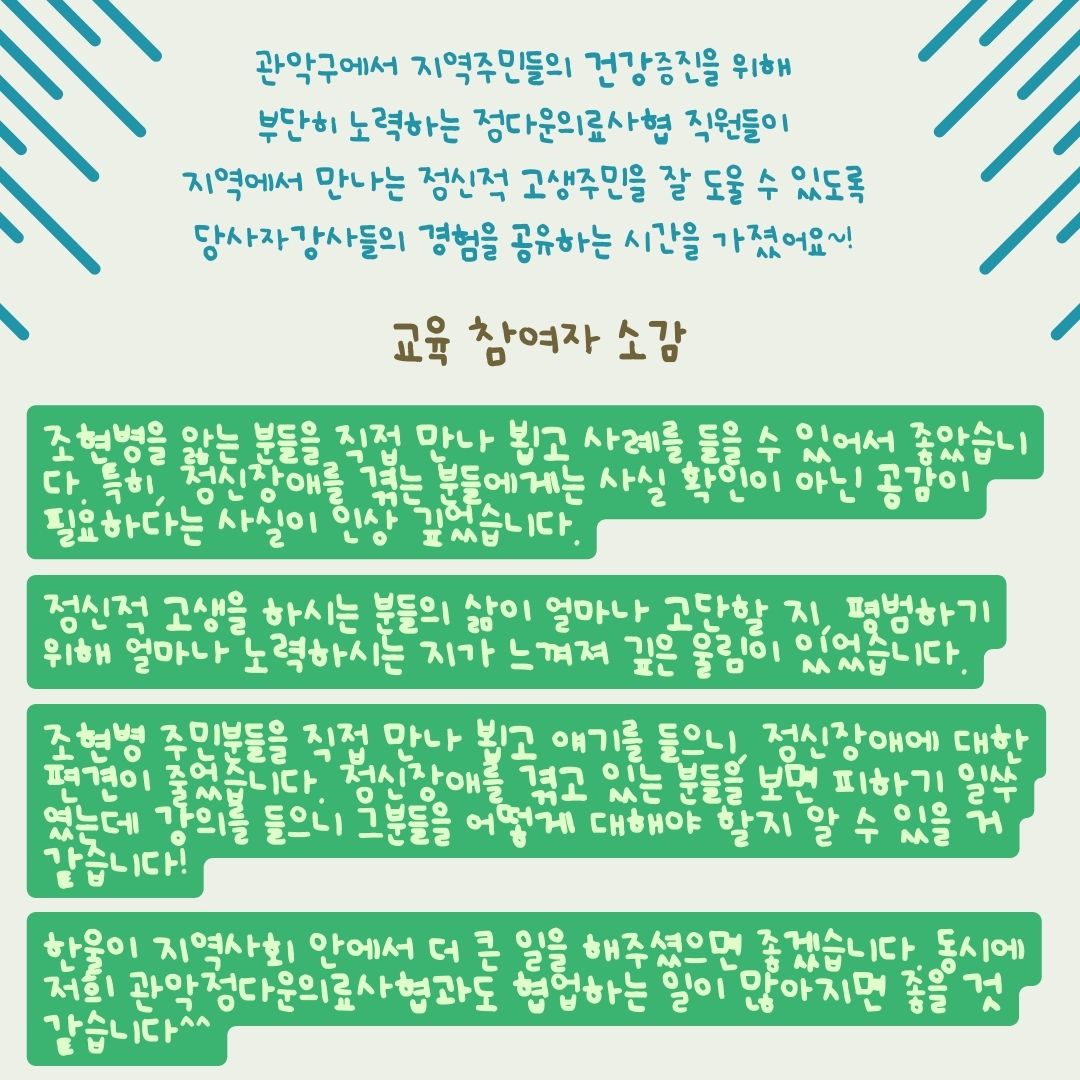 관악구에서 지역주민들의 건강증진을 위해
부단히 노력하는 정다운의료사협 직원들이
지역에서 만나는 정신적 고생주민을 잘 도울 수 있도록
당사자강사들의 경험을 공유하는 시간을 가졌어요~!
교육 참여자 소감
조현병을 앓는 분들을 직접 만나 뵙고 사례를 들을 수 있어서 좋았습니
다. 특히, 정신장애를 겪는 분들에게는 사실 확인이 아닌 공감이
필요하다는 사실이 인상 깊었습니다.
정신적 고생을 하시는 분들의 삶이 얼마나 고단할 지, 평범하기
위해 얼마나 노력하시는 지가 느껴져 깊은 울림이 있었습니다.
조현병 주민분들을 직접 만나 뵙고 얘기를 들으니, 정신장애에 대한
편견이 줄었습니다. 정신장애를 겪고 있는 분들을 보면 피하기 일쑤
였는데 강의를 들으니 그분들을 어떻게 대해야 할지 알 수 있을 거
같습니다!
한울이 지역사회 안에서 더 큰 일을 해주셨으면 좋겠습니다. 동시에
저희 관악정다운의료사협과도 협업하는 일이 많아지면 좋을 것
같습니다^^